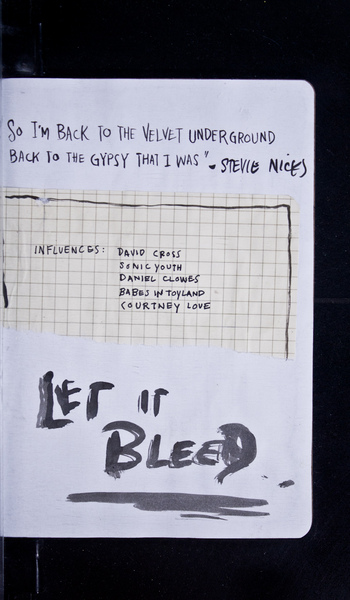 SO I'M BACK TO THE VELVET UNDERGROUND
BACK TO THE GYPSY THAT I WAS" - STEVIE NICKS
INFLUENCES: DAVID CROSS
SONIC YOUTH
DANIEL CLOWES
BABES IN TOYLAND
COURTNEY LOVE
LET IT
BLEED